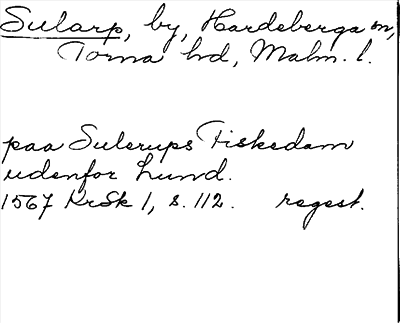 Sularp, by, Hardeberga sn,
Torna hd, Malm. l.
paa Sulerups Fiskedam
udenfor Lund.
1567 KrSk 1, s. 112. regest.